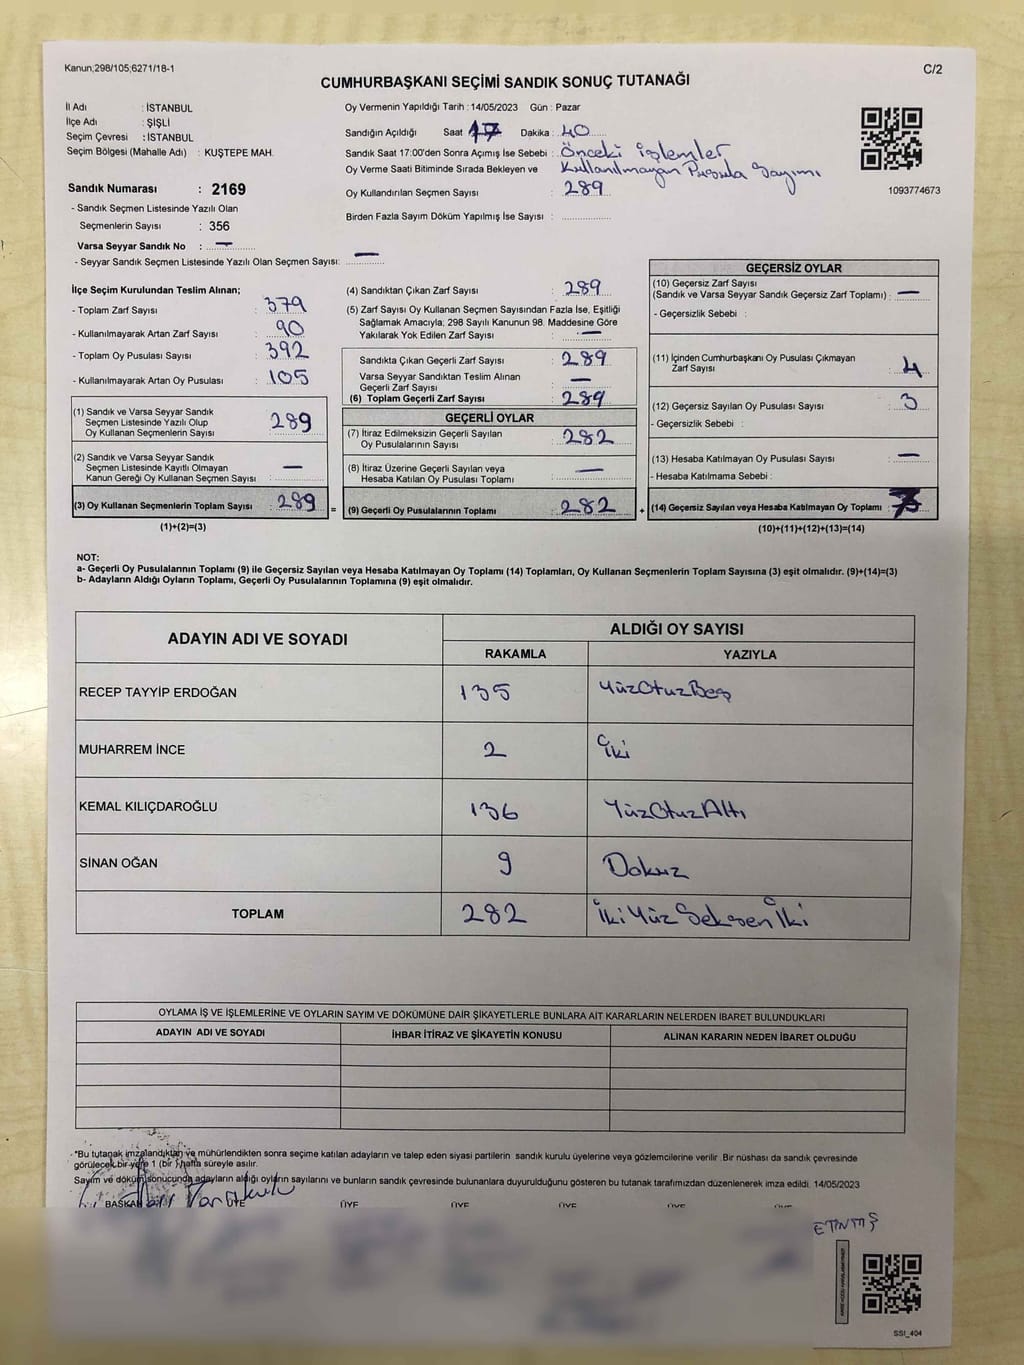 Kanun;298/105;6271/18-1
C/2
CUMHURBAŞKANI SEÇİMİ SANDIK SONUÇ TUTANAĞI
İl Adı : İSTANBUL
İlçe Adı : ŞİŞLİ
Seçim Çevresi : İSTANBUL
Seçim Bölgesi (Mahalle Adı) : KUŞTEPE MAH.
Sandık Numarası : 2169
- Sandık Seçmen Listesinde Yazılı Olan
Seçmenlerin Sayısı : 356
Varsa Seyyar Sandık No : —
- Seyyar Sandık Seçmen Listesinde Yazılı Olan Seçmen Sayısı: —
Oy Vermenin Yapıldığı Tarih : 14/05/2023 Gün : Pazar
Sandığın Açıldığı Saat 17 Dakika : 40
Sandık Saat 17:00'den Sonra Açımış İse Sebebi : Önceki işlemler
Oy Verme Saati Bitiminde Sırada Bekleyen ve Kullanılmayan Pusula Sayımı
Oy Kullandırılan Seçmen Sayısı : 289
Birden Fazla Sayım Döküm Yapılmış İse Sayısı :
1093774673
İlçe Seçim Kurulundan Teslim Alınan;
- Toplam Zarf Sayısı : 379
- Kullanılmayarak Artan Zarf Sayısı : 90
- Toplam Oy Pusulası Sayısı : 392
- Kullanılmayarak Artan Oy Pusulası : 105
(1) Sandık ve Varsa Seyyar Sandık
Seçmen Listesinde Yazılı Olup
Oy Kullanan Seçmenlerin Sayısı : 289
(2) Sandık ve Varsa Seyyar Sandık
Seçmen Listesinde Kayıtlı Olmayan
Kanun Gereği Oy Kullanan Seçmen Sayısı : —
(3) Oy Kullanan Seçmenlerin Toplam Sayısı : 289 =
(1)+(2)=(3)
(4) Sandıktan Çıkan Zarf Sayısı : 289
(5) Zarf Sayısı Oy Kullanan Seçmen Sayısından Fazla İse, Eşitliği
Sağlamak Amacıyla; 298 Sayılı Kanunun 98. Maddesine Göre
Yakılarak Yok Edilen Zarf Sayısı : —
Sandıkta Çıkan Geçerli Zarf Sayısı : 289
Varsa Seyyar Sandıktan Teslim Alınan
Geçerli Zarf Sayısı : —
(6) Toplam Geçerli Zarf Sayısı : 289
GEÇERLİ OYLAR
(7) İtiraz Edilmeksizin Geçerli Sayılan
Oy Pusulalarının Sayısı : 282
(8) İtiraz Üzerine Geçerli Sayılan veya
Hesaba Katılan Oy Pusulası Toplamı : —
(9) Geçerli Oy Pusulalarının Toplamı : 282 +
GEÇERSİZ OYLAR
(10) Geçersiz Zarf Sayısı
(Sandık ve Varsa Seyyar Sandık Geçersiz Zarf Toplamı) : —
- Geçersizlik Sebebi :
(11) İçinden Cumhurbaşkanı Oy Pusulası Çıkmayan
Zarf Sayısı : 4
(12) Geçersiz Sayılan Oy Pusulası Sayısı : 3
- Geçersizlik Sebebi :
(13) Hesaba Katılmayan Oy Pusulası Sayısı : —
- Hesaba Katılmama Sebebi :
(14) Geçersiz Sayılan veya Hesaba Katılmayan Oy Toplamı : 7
(10)+(11)+(12)+(13)=(14)
NOT:
a- Geçerli Oy Pusulalarının Toplamı (9) ile Geçersiz Sayılan veya Hesaba Katılmayan Oy Toplamı (14) Toplamları, Oy Kullanan Seçmenlerin Toplam Sayısına (3) eşit olmalıdır. (9)+(14)=(3)
b- Adayların Aldığı Oyların Toplamı, Geçerli Oy Pusulalarının Toplamına (9) eşit olmalıdır.
ADAYIN ADI VE SOYADI
ALDIĞI OY SAYISI
RAKAMLA YAZIYLA
RECEP TAYYİP ERDOĞAN 135 YüzOtuzBeş
MUHARREM İNCE 2 İki
KEMAL KILIÇDAROĞLU 136 YüzOtuzAltı
SİNAN OĞAN 9 Dokuz
TOPLAM 282 İkiYüzSeksenİki
OYLAMA İŞ VE İŞLEMLERİNE VE OYLARIN SAYIM VE DÖKÜMÜNE DAİR ŞİKAYETLERLE BUNLARA AİT KARARLARIN NELERDEN İBARET BULUNDUKLARI
ADAYIN ADI VE SOYADI İHBAR İTİRAZ VE ŞİKAYETİN KONUSU ALINAN KARARIN NEDEN İBARET OLDUĞU
- "Bu tutanak imzalandıktan ve mühürlendikten sonra seçime katılan adayların ve talep eden siyasi partilerin sandık kurulu üyelerine veya gözlemcilerine verilir .Bir nüshası da sandık çevresinde
görülecek bir yere 1 (bir ) hafta süreyle asılır.
Sayım ve döküm sonucunda adayların aldığı oyların sayılarını ve bunların sandık çevresinde bulunanlara duyurulduğunu gösteren bu tutanak tarafımızdan düzenlenerek imza edildi. 14/05/2023
BAŞKAN ÜYE ÜYE ÜYE ÜYE ÜYE ÜYE
SSI_404